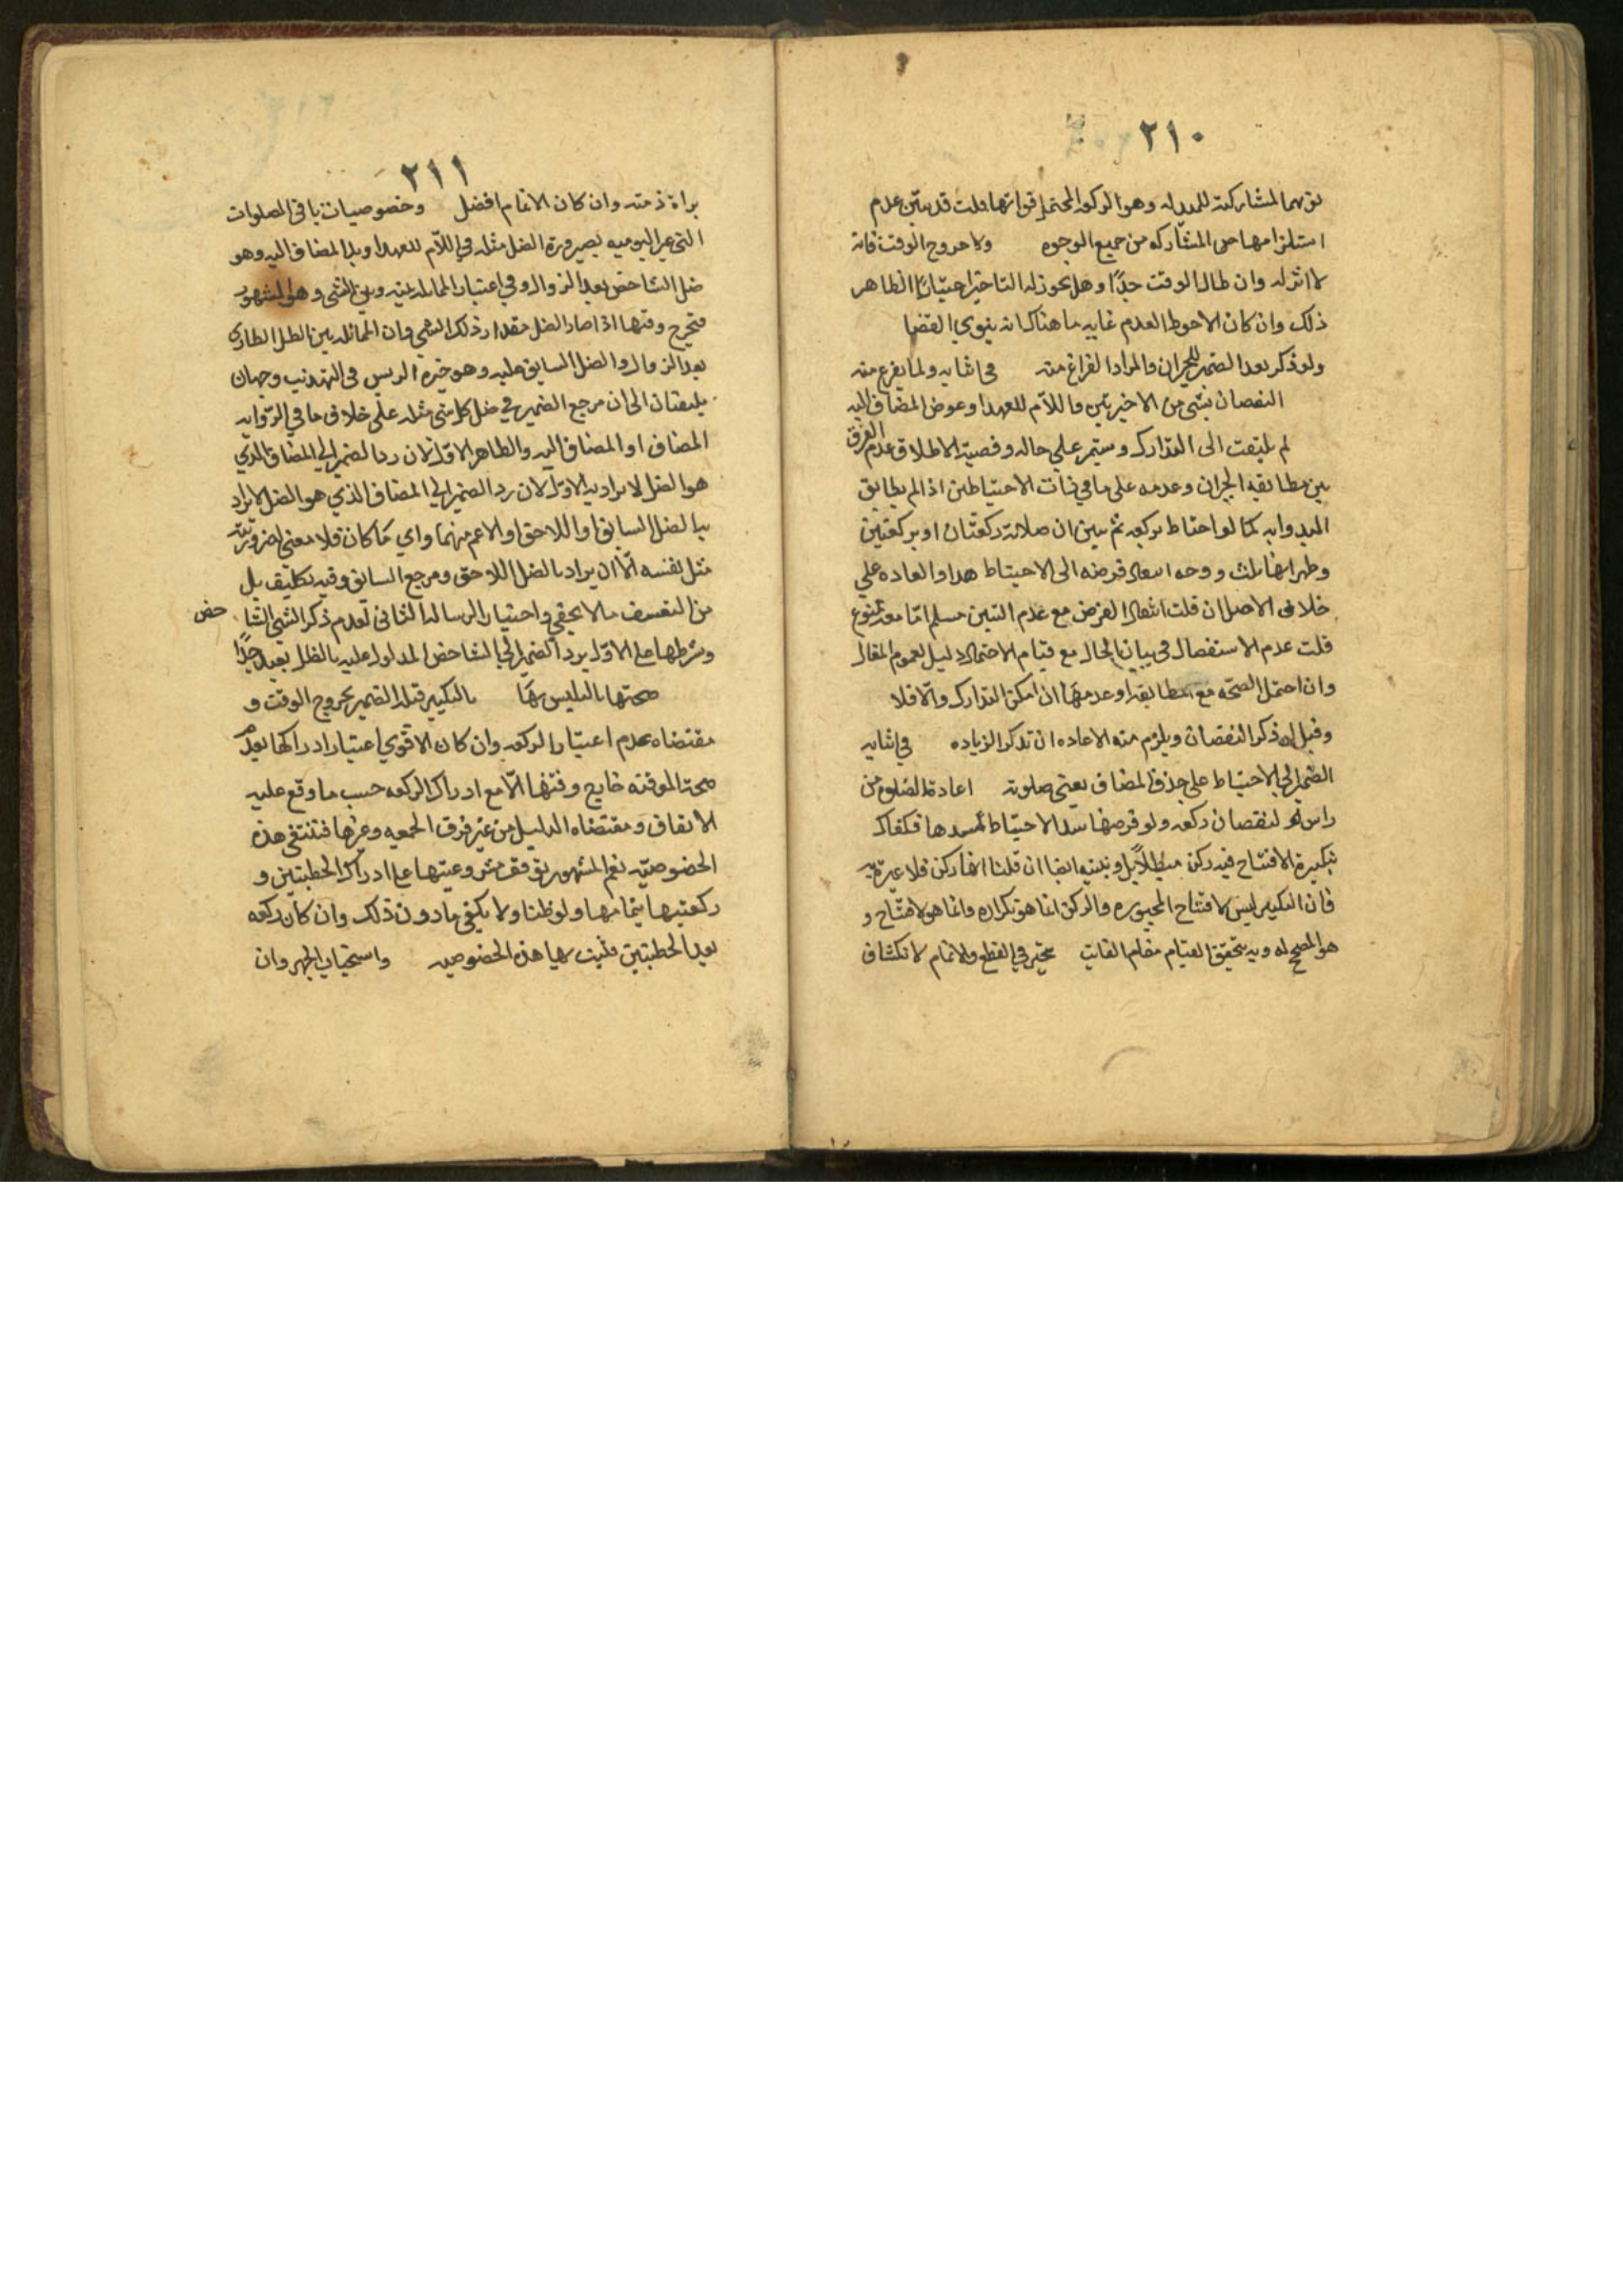 ٢١٠
المشاركته للمبدل وهو الركوع المحتمل فواتها قلت قد تبين عدم
استلزامها من المشاركه من جميع الوجوه ولا خروج الوقت فانه
لا اثر له وان طال الوقت جدًا وهل يجوز له التاخير اختيارًا الظاهر
ذلك وان كان الاحوط العدم غايه ما هناك انه ينوي القضا
ولو ذكر بعد الضمير للجبران والمراد الفراغ منه في اثنايه ولما يفرغ منه
النقصان بشي من الاخيرتين واللام للعهد او عوض المضاف اليه
لم يلتفت الى التدارك ويستمر على حاله وقضية الاطلاق عدم الفرق
بين مطابقه الجبران وعدمه على ما في ذات الاحتياطين اذا لم يطابق
المبدوا به كما لو احتاط بركعه ثم تبين ان صلاته ركعتان او بركعتين
وظهر انها ثلث ووجه فرضه الى الاحتياط هذا والعاده علي
خلاف الاصل ان قلت انتقال الفرض مع عدم التبين مسلم امّا معه ممنوع
قلت عدم الاستفصال في بيان الحال مع قيام الاحتمال دليل لعموم المقال
وان احتمل الصحّه مع المطابقه او عدمها ان امكن التدارك والّا فلا
وقبل ذكر النقصان ويلزم منه الاعاده ان تذكر الزياده في اثنايه
الضمير الى الاحتياط على حذف المضاف يعنى صلوته اعادة الصلوة من
راس لنقصان ركعه ولو فرضها سد الاحتياط مسدها فكذاك
تكبيرة الافتتاح فيه ركن ان قلنا انها ركن فلا عبرة به
فان التكبير ليس لافتتاح المجبوره والركن انما هو تكراره وانما هو لافتتاح و
هو المصحح له وبه يتحقق القيام مقام الفايت تخير في القطع والاتمام لانكشاف
٢١١
براة ذمته وان كان الاتمام افضل وخصوصيات باقى الصلوات
التى غير اليوميه بصيرورة الظل مثله في اللّام للعهد او بدل المضاف اليه وهو
ظل الشاخص بعد الزوال وفي اعتبار المماثله بينه وبين الشي وهو المشهور
فتخرج وقتها اذا صار الظل مقدار ذلك الشي فان المماثله بين الظل الطاري
بعد الزوال والظل السابق عليه وهو خيرة الريس في التهذيب وجهان
يلتفتان الى ان مرجع الضمير في ظل كل شى مثله على خلاف ما في الرّوايه
المضاف او المضاف اليه والظاهر الاوّل لان رد الضمير الي المضاف الذي
هو الظل لا يراد به الاول لان رد الضمير الي المضاف الذي هو الظل لا يراد
به الظل السابق او اللاحق او الاعم منهما واي ما كان فلا معنى لصرورته
مثل نفسه الّا ان يراد بالظل اللاحق ومرجع السابق وفيه تكليف بل
من التعسف ما لا يخفي واختيار الرساله الثانى لعدم ذكر الشي الشا خص
وشرطها على الاوّل يرد الضمير الي الشاخص المدلول عليه بالظل بعيد جدًا
صحتها بالتلبس بها بالتكبير قبله الضمير بخروج الوقت و
مقتضاه عدم اعتبار الركعه وان كان الاقوي اعتبار ادراكها بعدم
صحة الموقته خارج وقتها الّا مع ادراك الركعه حسب ما وقع عليه
الاتفاق ومقتضاه الدليل من غير فرق الجمعه وغيرها فتنتفى هذه
الخصوصيّه نعم المشهور توقف مشروعيتها على ادراك الخطبتين و
ركعتيها بتمامها ولو ظنا ولا يكفي ما دون ذلك وان كان ركعه
بعد الخطبتين فليت لها هذه الخصوصيه واستحباب الجهر وان